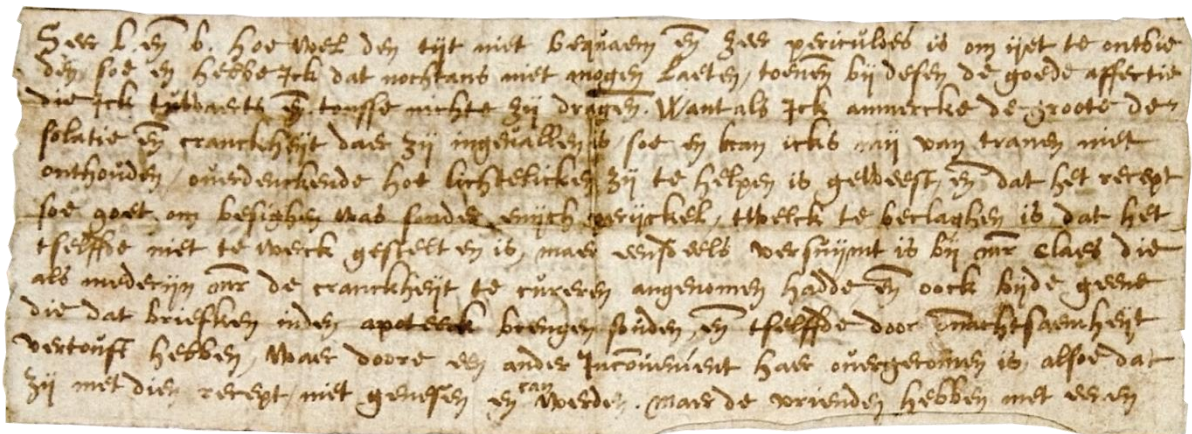 Seer l. en̄ b. hoe wel den tijt niet bequaem en̄ zeer periculoes is om ijet te ontbie
den, soe en hebbe Ick dat nochtans niet mogen Laeten, toenen̄ bij desen de goede affectie
die Ick tuwaerts en̄ tousse nichte zij dragen̄. Want als Ick anmercke de groote de-
solatie en̄ cranckheijt daer zij ingevallen is, soe en kan icks mij van tranen niet
onthouden, overdenckende hoe lichtelicken zij te helpen is geweest, en̄ dat het recept
soe goet om besighen was sonder enijch perijckel, twelck te beclaghen is, dat het
tselffde niet te werck gestelt en is, maer eensdeels versuijmt is bij mr̄ Claes die
als medecijn mr̄ de cranckheijt te cureren angenomen hadde en̄ oock bijde geene
die dat briefken inden apoteeck brengen souden, en̄ tselffde door onachtsaemheijt
vertouft hebben, waer doore een ander Inconvenient haer overgecomen is, alsoe dat
zij met dien recept, niet genesen en can werden. maer de vrienden hebben met eenen